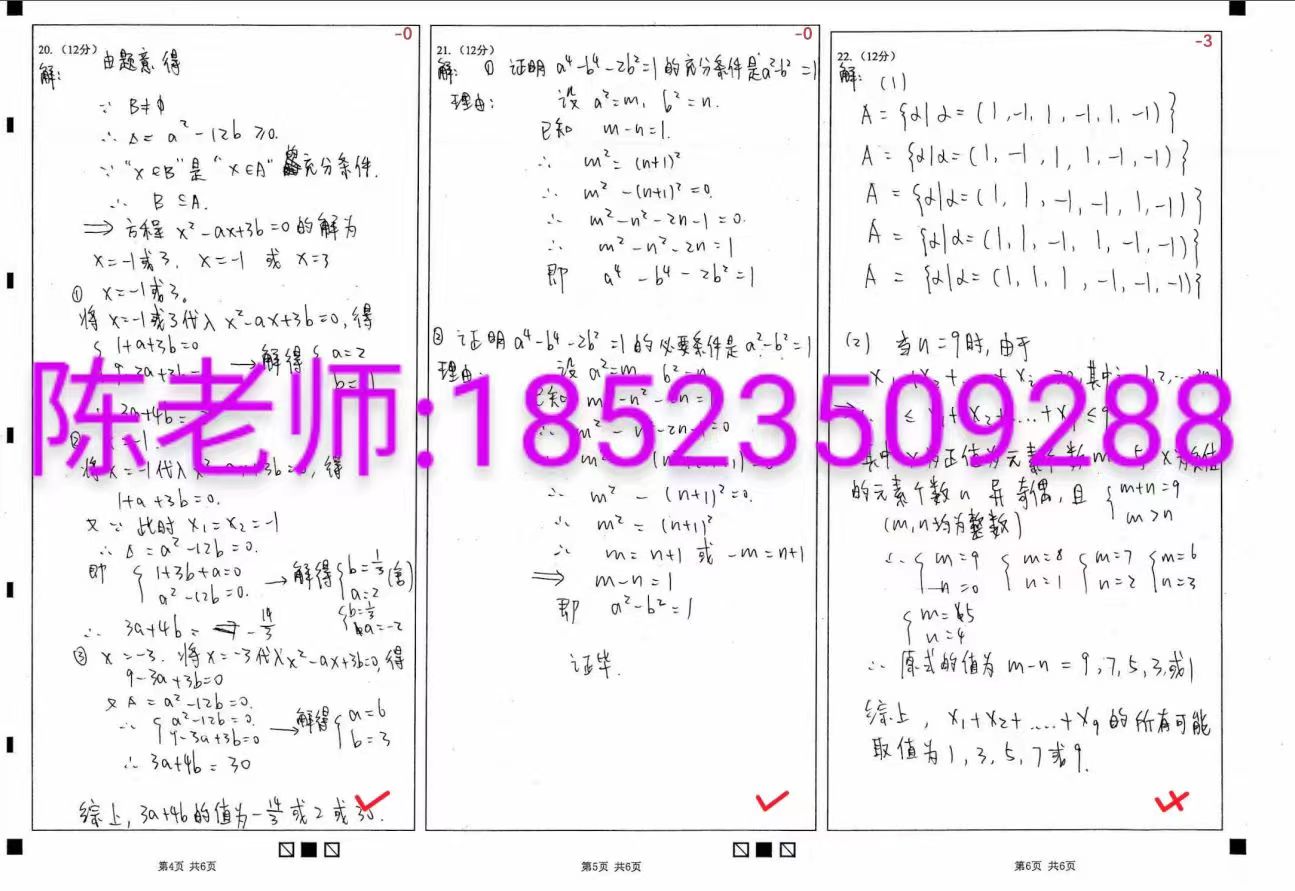 -0
20. （12分）
解: 由题意得
∵ B≠ϕ
∴ Δ= a²-12b ≥0.
∵ "x∈B"是"x∈A"的充分条件.
∴ B⊆A.
⟹ 方程 x²-ax+3b=0 的解为
x=-1或3. x=-1 或 x=3
① x=-1或3。
将 x=-1或3代入 x²-ax+3b=0, 得
{ 1+a+3b=0
→ 解得 { a=2
3a+4b
②
将 x=-1代入
得
1+a+3b=0.
又∵ 此时 x₁=x₂=-1
∴ Δ=a²-12b=0.
即 { 1+3b+a=0
a²-12b=0. → 解得 { b=1/3 (舍)
a=2
{ b=1/3
a=-2
∴ 3a+4b= -14/3
③ x=-3. 将x=-3代入x²-ax+3b=0, 得
9-3a+3b=0
又 Δ=a²-12b=0.
∴ { a²-12b=0.
9-3a+3b=0 → 解得 { a=6
b=3
∴ 3a+4b=30
综上, 3a+4b的值为-14/3 或 2 或 30.
第4页 共6页
-0
21. （12分）
解: ① 证明 a⁴-b⁴-2b²=1 的充分条件是 a²-b²=1
理由: 设 a²=m, b²=n.
已知 m-n=1.
∴ m²=(n+1)²
∴ m²-(n+1)²=0.
∴ m²-n²-2n-1=0.
∴ m²-n²-2n=1
即 a⁴-b⁴-2b²=1
② 证明 a⁴-b⁴-2b²=1 的必要条件是 a²-b²=1
理由: 设 a²=m
陈老师:18523509288
∴ m²-(n+1)²=0.
∴ m²=(n+1)²
∴ m=n+1 或 -m=n+1
⟹ m-n=1
即 a²-b²=1
证毕.
第5页 共6页
-3
22. （12分）
解: (1)
A={α|α=(1,-1,1,-1,1,-1)}
A={α|α=(1,-1,1,1,-1,-1)}
A={α|α=(1,1,-1,-1,1,-1)}
A={α|α=(1,1,-1,1,-1,-1)}
A={α|α=(1,1,1,-1,-1,-1)}
(2) 当n=9时, 由于
的元素个数 n 异奇偶, 且 { m+n=9
m>n
(m,n均为整数)
∴ { m=9
n=0 { m=8
n=1 { m=7
n=2 { m=6
n=3
{ m=5
n=4
∴ 原式的值为 m-n=9,7,5,3,或1
综上, x₁+x₂+....+x₉的所有可能
取值为1,3,5,7或9.
第6页 共6页